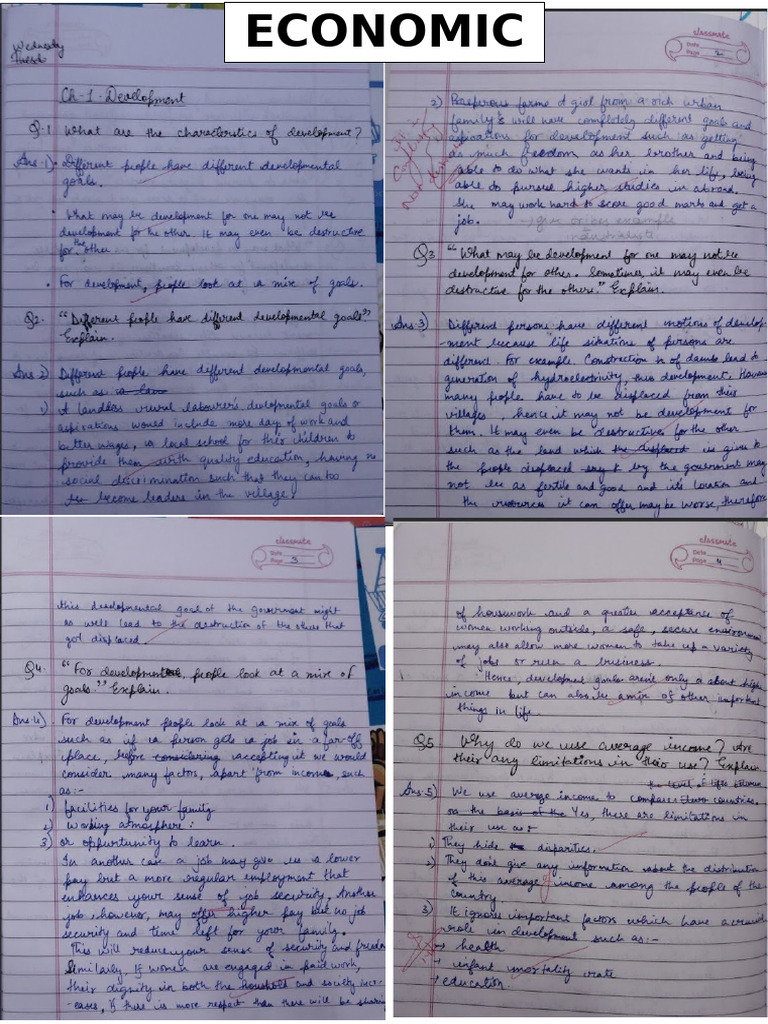 ECONOMIC
Wednesday
Ch-1. Development
Q.1 What are the characteristics of development?
Ans 1). Different people have different developmental
goals.
• What may be development for one may not be
development for the other. It may even be destructive
for the other
• For development, people look at a mix of goals.
Q2. "Different people have different developmental goals"
Explain.
Ans 2) Different people have different developmental goals,
such as
1) A landless rural labourer's devlopmental goals or
aspirations would include more day of work and
better wages, a local school for their children to
provide them with quality education, having no
social discrimination such that they can too
become leaders in the village.
classmate
Date
Page 2
2) Prosperous farme d girl from a rich urban
family's will have completely different goals and
aspirations for development such as getting
as much freedom as her brother and being
able to do what she wants in her life, being
able to pursue higher studies in abroad.
She may work hard to score good marks and get a
job.
Q3 "What may be development for one may not be
development for other. Sometimes, it may even be
destructive for the others." Explain.
Ans. 3) Different persons have different notions of develop-
-ment because life situations of persons are
different. For example Construction of dams lead to
generation of hydroelectricity, thus development.
many people have to be displaced from their
villages, hence it may not be development for
them. It may even be destructives for the other
such as the land which is given to
the people displaced by the government may
not be as fertile and good and its location and
the resources it can offer may be worse, therefore
classmate
Date
Page 3
this developmental goal of the government might
as well lead to the destruction of the others that
got displaced.
Q4. "For development people look at a mix of
goals." Explain.
Ans 4). For development people look at a mix of goals
such as if a person gets a job in a far off
place, before considering accepting it we would
consider many factors, apart from income, such
as:-
1) facilities for your family
2) working atmosphere:
3) or oppurtunity to learn.
In another case a job may give us a lower
pay but a more regular employment that
enhances your sense of job security. Another
job, however, may offer higher pay but no job
security and time left for your family.
This will reduce your sense of security and freedom
Similarly, If women are engaged in paid work,
their dignity in both the houshold and society incr-
-eases, If there is more respect then there will be sharing
classmate
Date
Page 4
of housework and a greater acceptance of
women working outside, a safe, secure environment
may also allow more women to take up a variety
of jobs or run a business.
Hence, development goals aren't only a about high
income but can also be a mix of other important
things in life.
Q5 Why do we use average income? Are
their any limitations in their use? Explain
Ans-5) We use average income to compare countries
on the basis of the Yes, there are limitations in
their use as:-
1) They hide disparities.
2) They don't give any information about the distribution
of this average income among the people of the
country.
3) It ignore important factors which have a
role in development such as:-
→ health
→ infant mortality rate
→ education